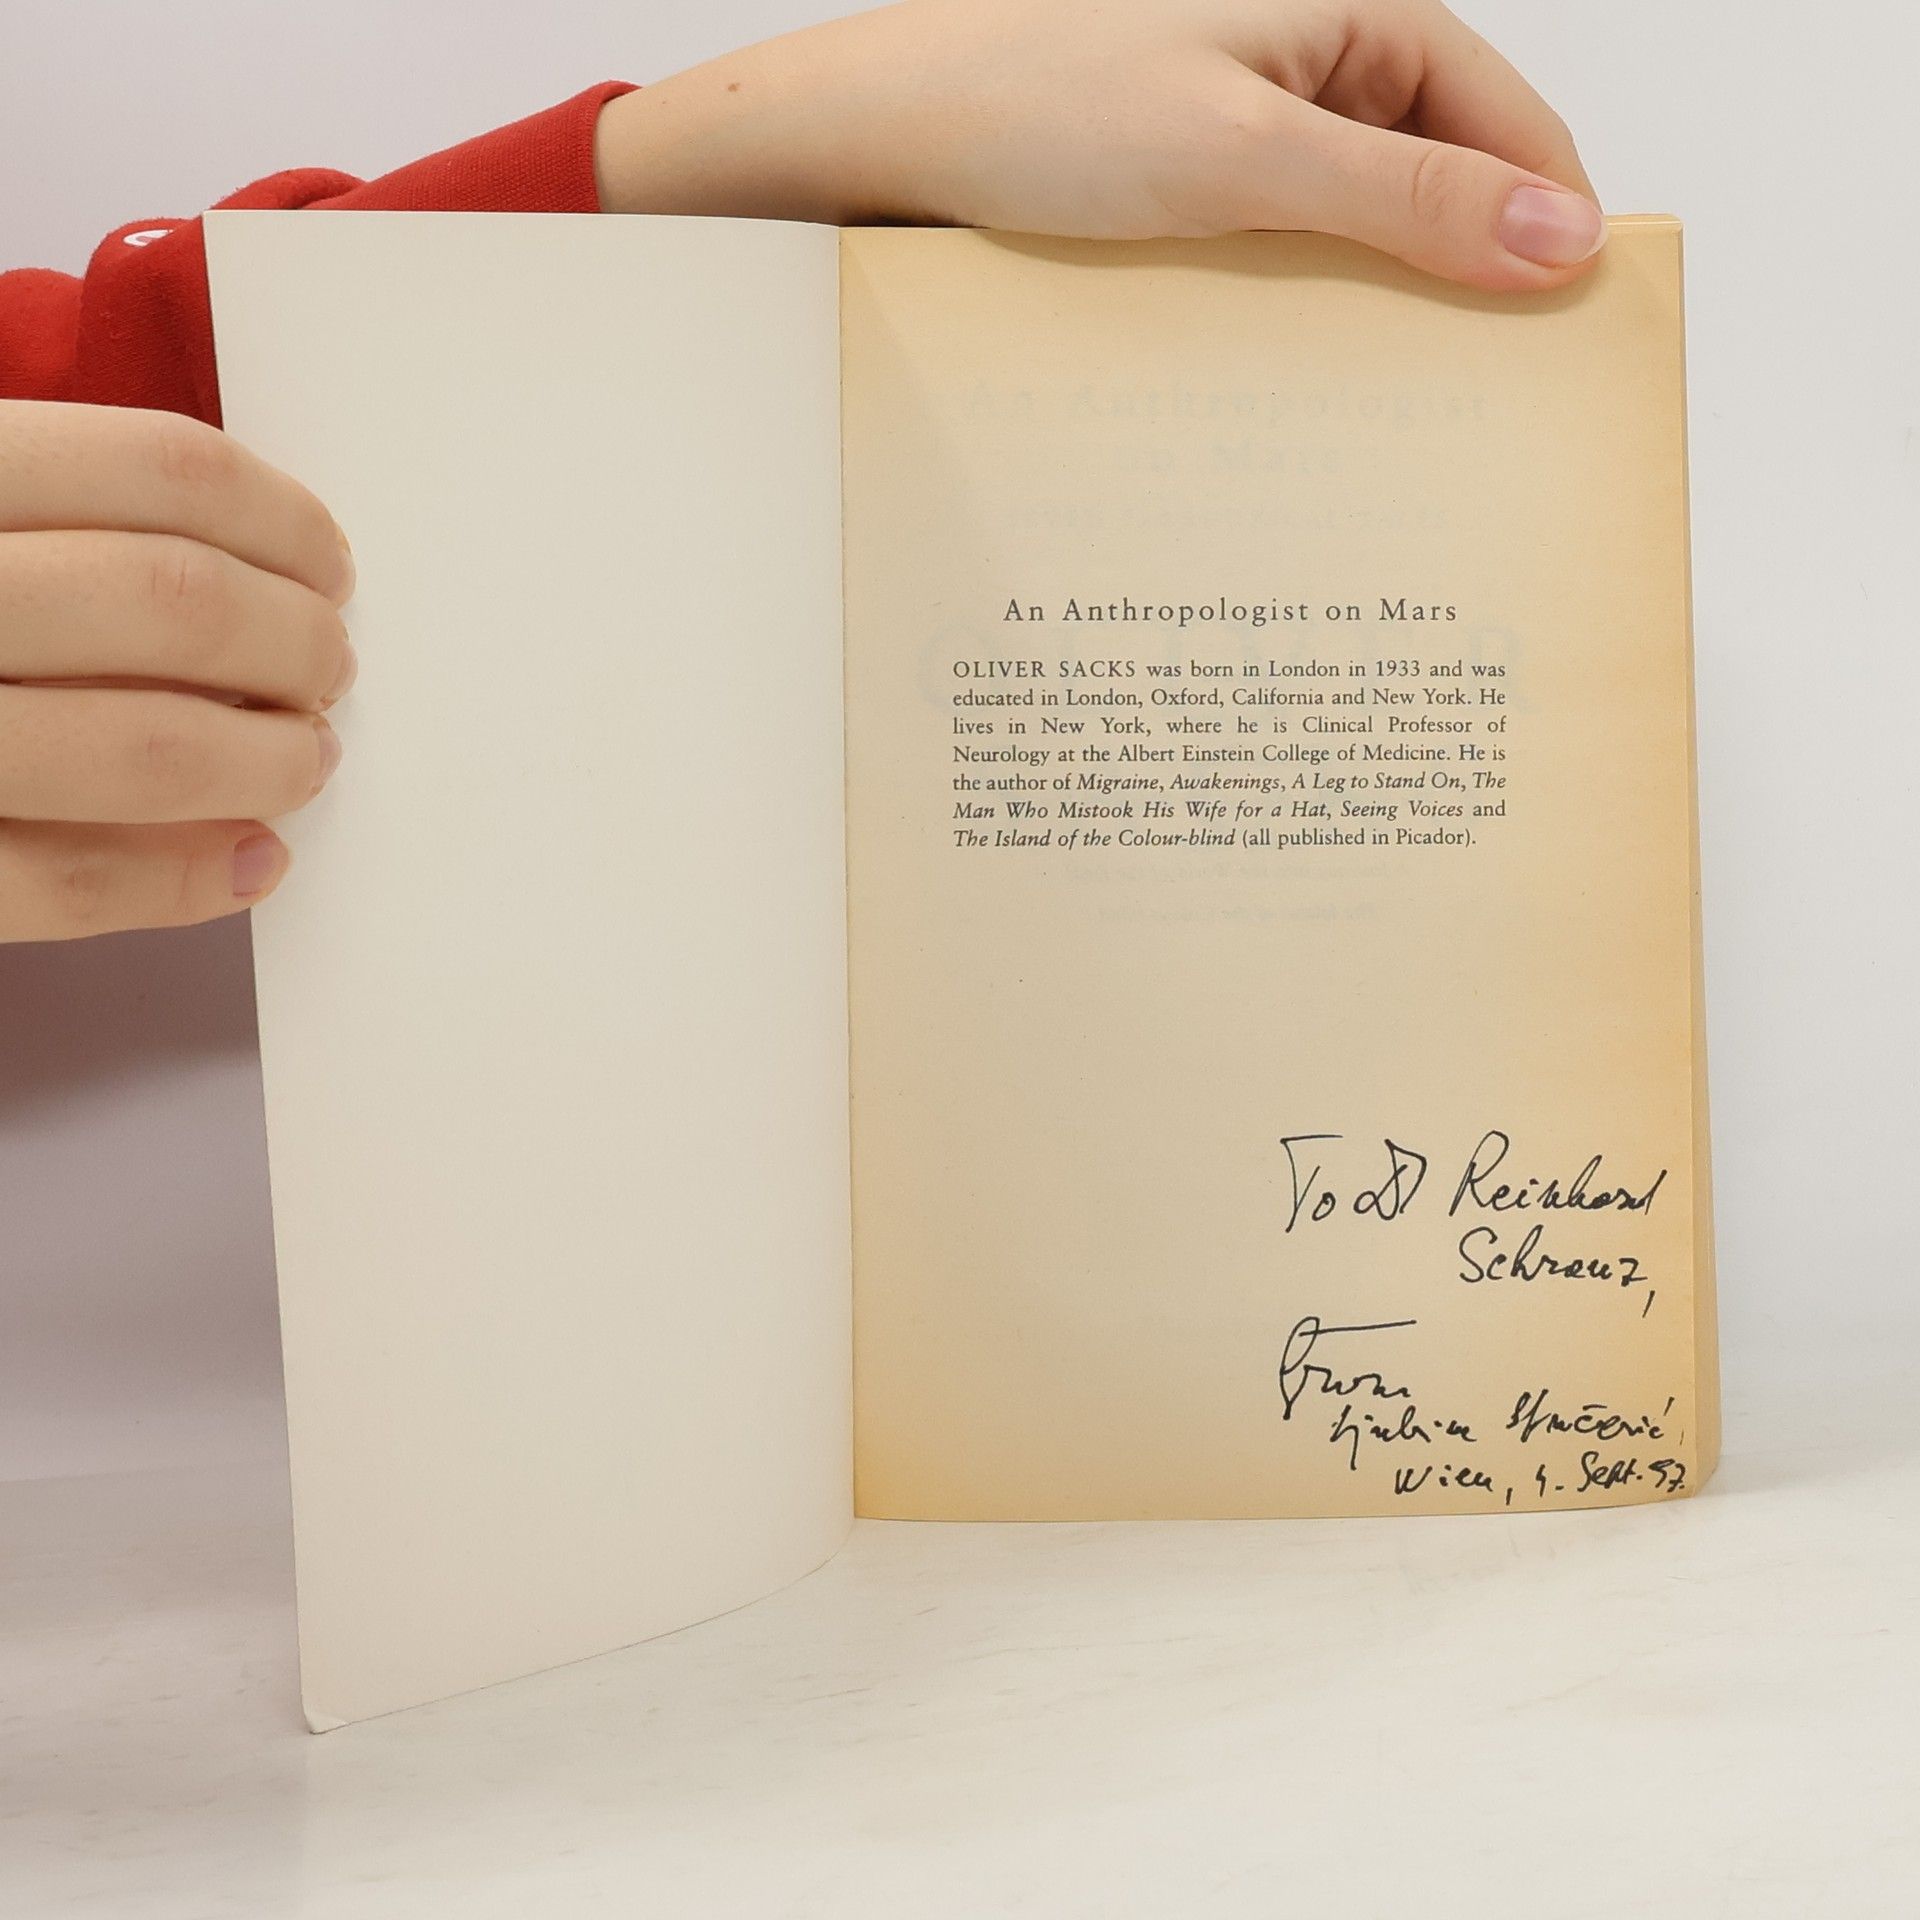 An Anthropologist on Mars
OLIVER SACKS was born in London in 1933 and was
educated in London, Oxford, California and New York. He
lives in New York, where he is Clinical Professor of
Neurology at the Albert Einstein College of Medicine. He is
the author of Migraine, Awakenings, A Leg to Stand On, The
Man Who Mistook His Wife for a Hat, Seeing Voices and
The Island of the Colour-blind (all published in Picador).
To Dr Reinhard
Schranz,
From
Wien, 4. Sept. 97.